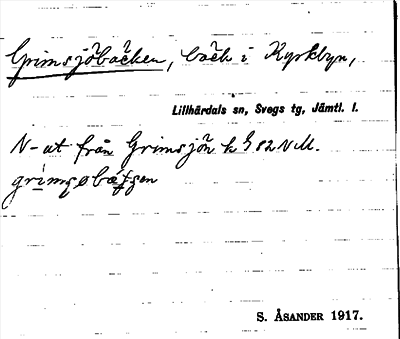 Grimsjöbäcken, bäck i Kyrkbyn,
Lillhärdals sn, Svegs tg, Jämtl. l.
N-ut från Grimsjön
grimsøbætsen
S. ÅSANDER 1917.